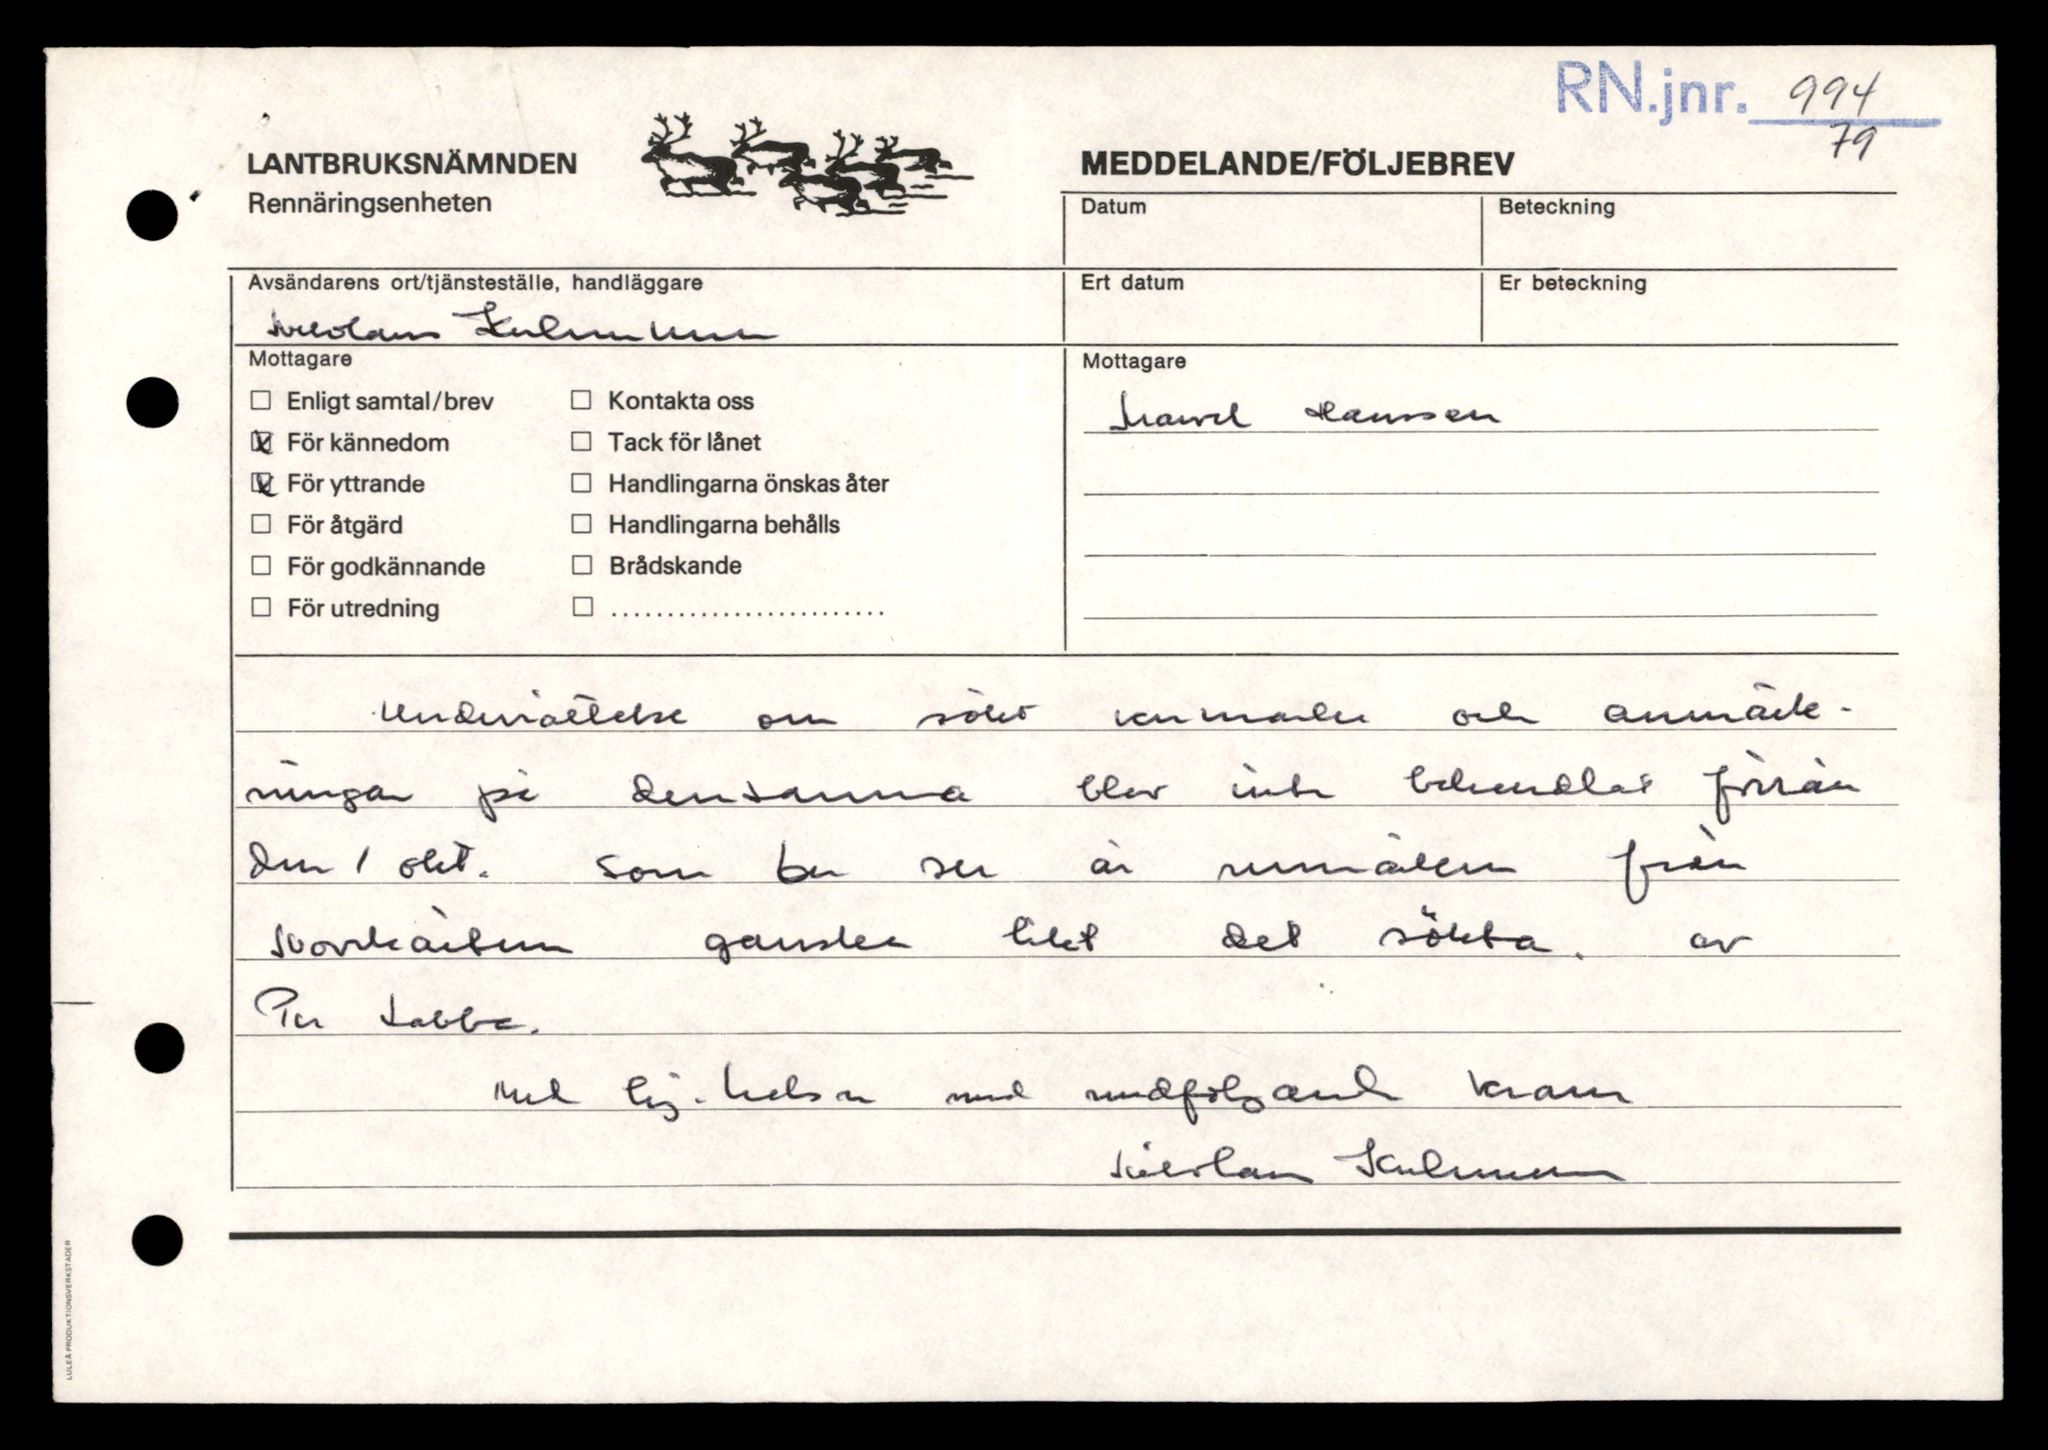 RN.jnr. 994
79
LANTBRUKSNÄMNDEN
Rennäringsenheten
MEDDELANDE/FÖLJEBREV
Datum
Beteckning
Avsändarens ort/tjänsteställe, handläggare
Ert datum
Er beteckning
Mottagare
☐ Enligt samtal/brev
☒ För kännedom
☒ För yttrande
☐ För åtgärd
☐ För godkännande
☐ För utredning
☐ Kontakta oss
☐ Tack för lånet
☐ Handlingarna önskas åter
☐ Handlingarna behålls
☐ Brådskande
☐ ........................
Mottagare
Hanssen
Underrättelse om sökt renmärke och anmärk-
ningar på densamma blev inte behandlat förrän
den 1 okt. Som du ser är renmärken från
ganska likt det sökta. av
Per Labba.
Med lig. helsn med medföljande kram
LULEÅ PRODUKTIONSVERKSTÄDER